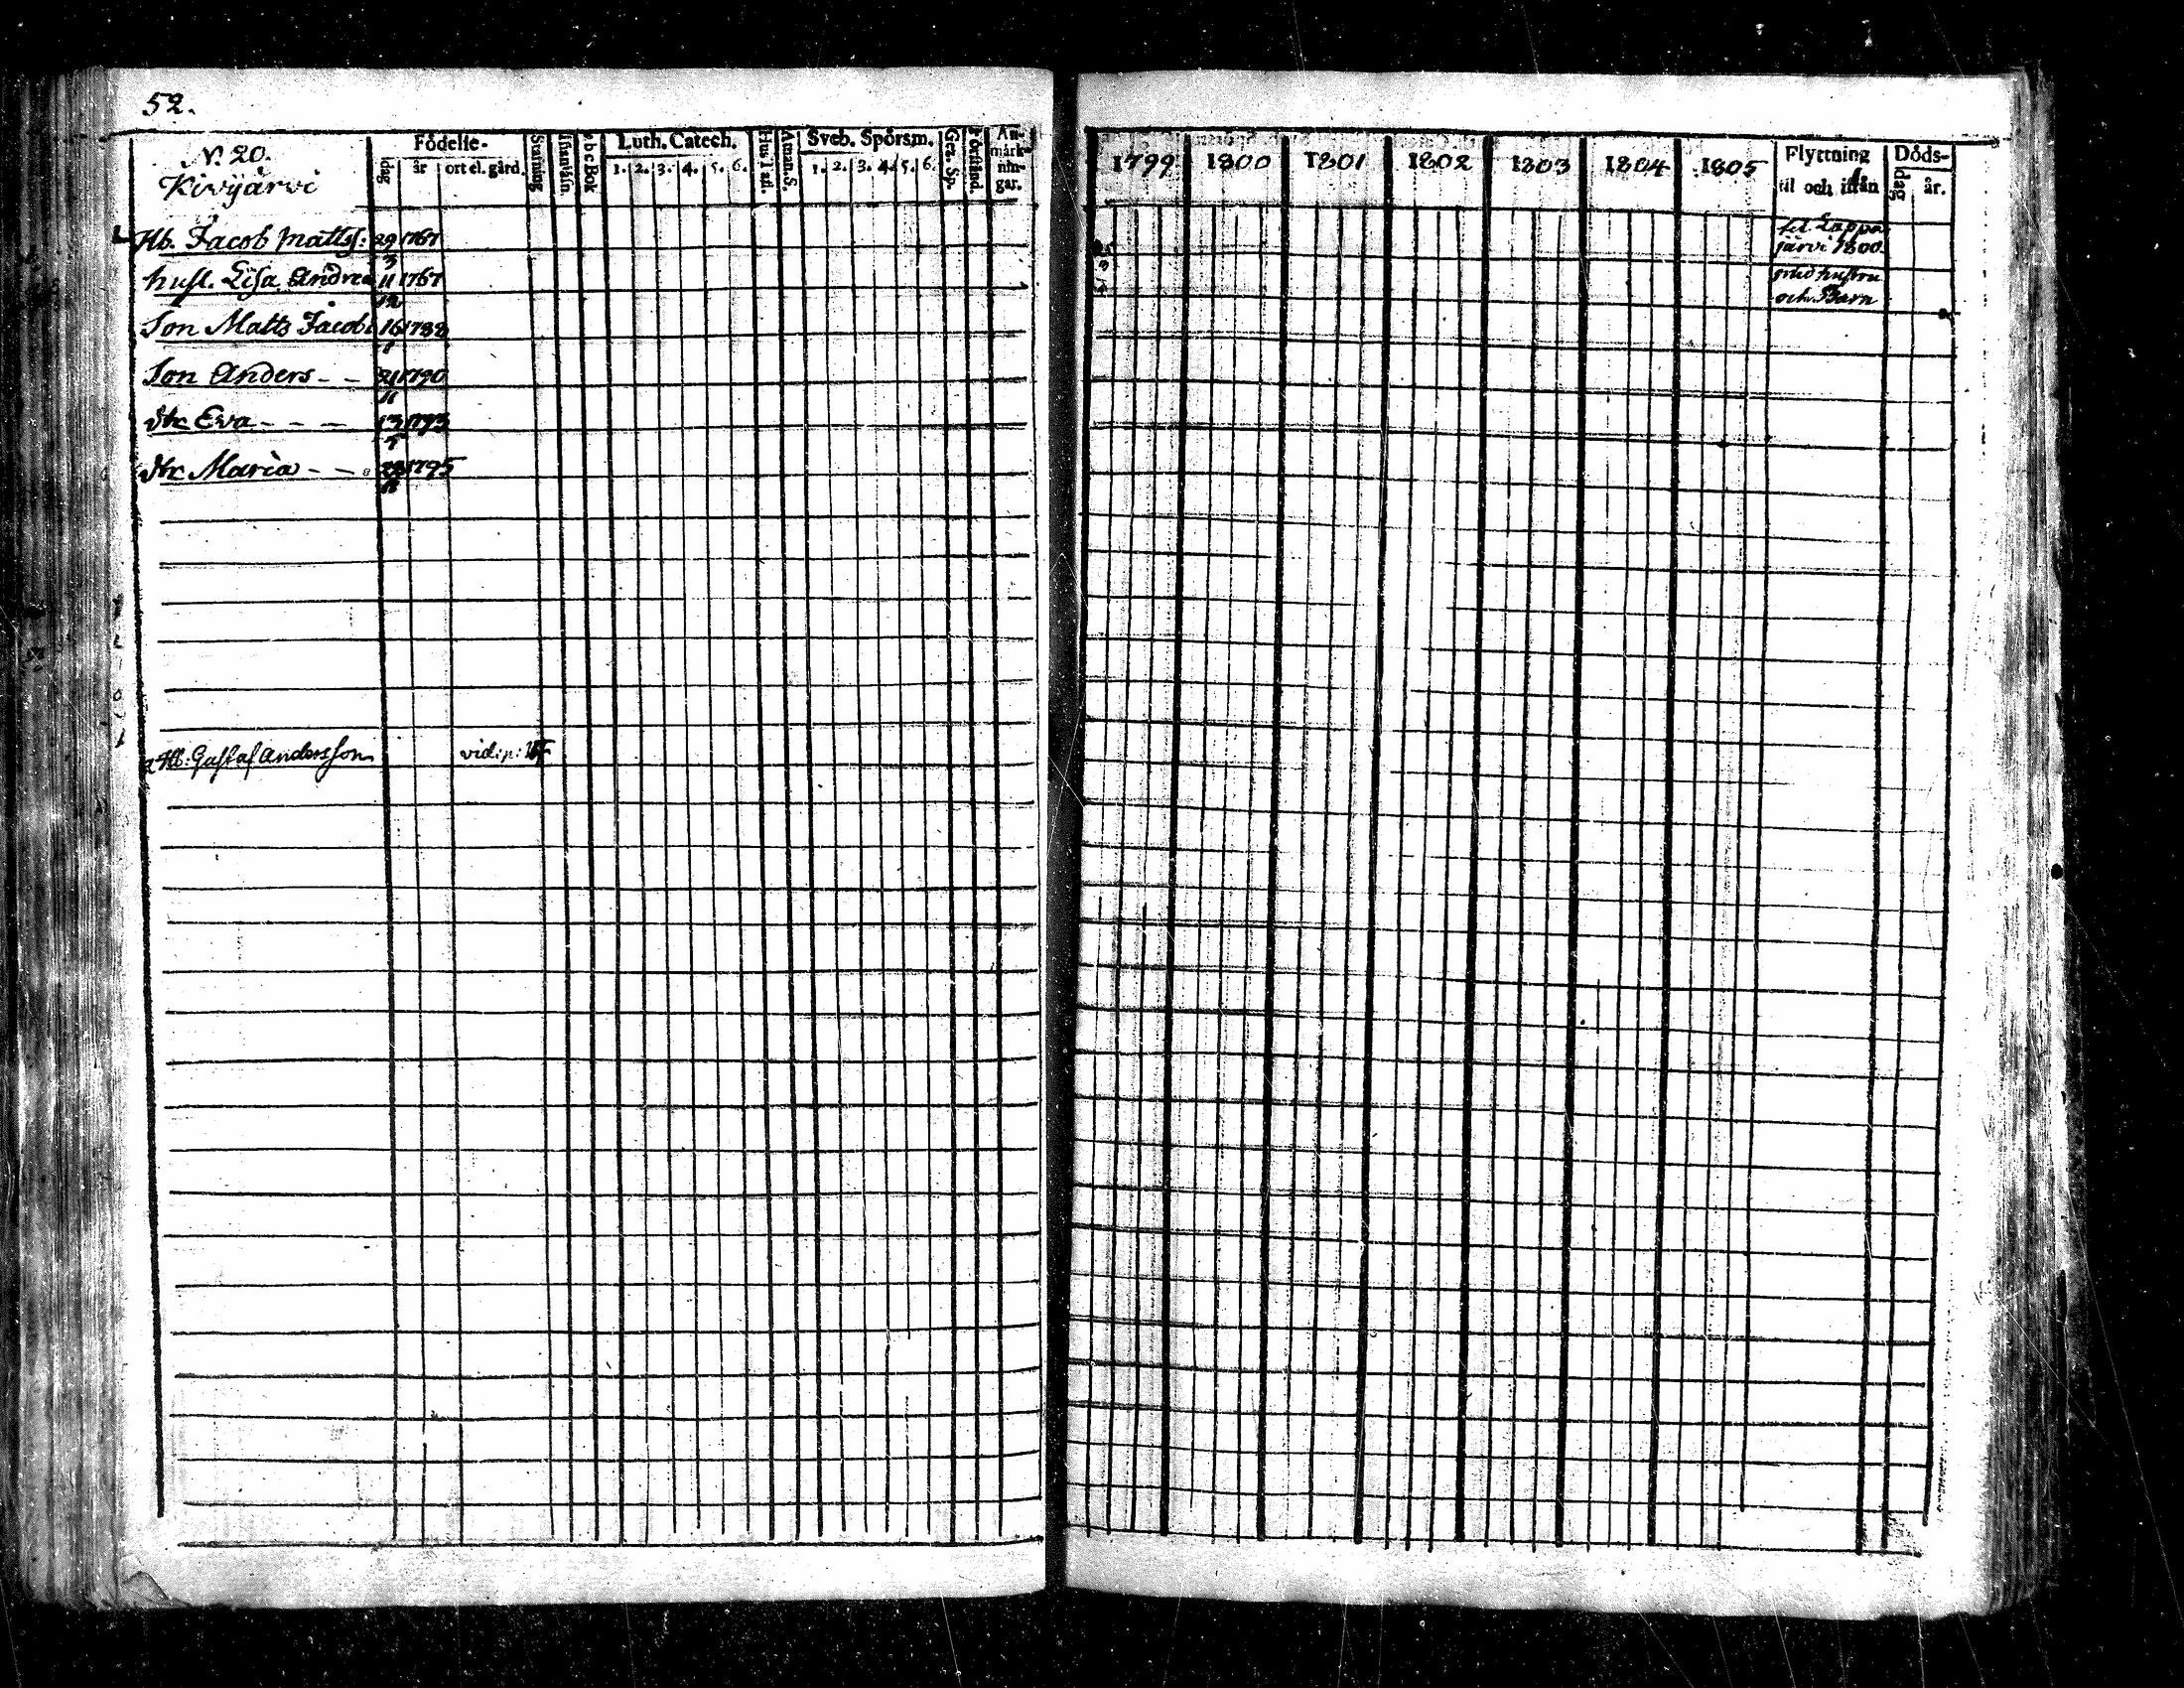 52.
N. 20.
Kivijärvi
Födelse-
dag år ort el. gård.
Stafning
Abc Bok
Luth. Catech.
1. 2. 3. 4. 5. 6.
Hus Tafl.
Atanas. S.
Sveb. Spörsm.
1. 2. 3. 4. 5. 6.
Gra. Sp.
Förstånd.
An-
märk-
nin-
gar.
1799 1800 1801 1802 1803 1804 1805
Flyttning
til och ifrån
Döds-
dag år.
Hb. Jacob Matts: 29 1767
3
til Lappa
järvi 1800.
hust. Lisa Andrea 11 1767
12
med hustru
och Barn
Son Matts Jacobs 16 1788
8
Son Anders - - 21 1790
11
dtr Eva - - - 13 1793
5
dtr Maria - - 1795
Hb: Gustaf Andersson vid: p: